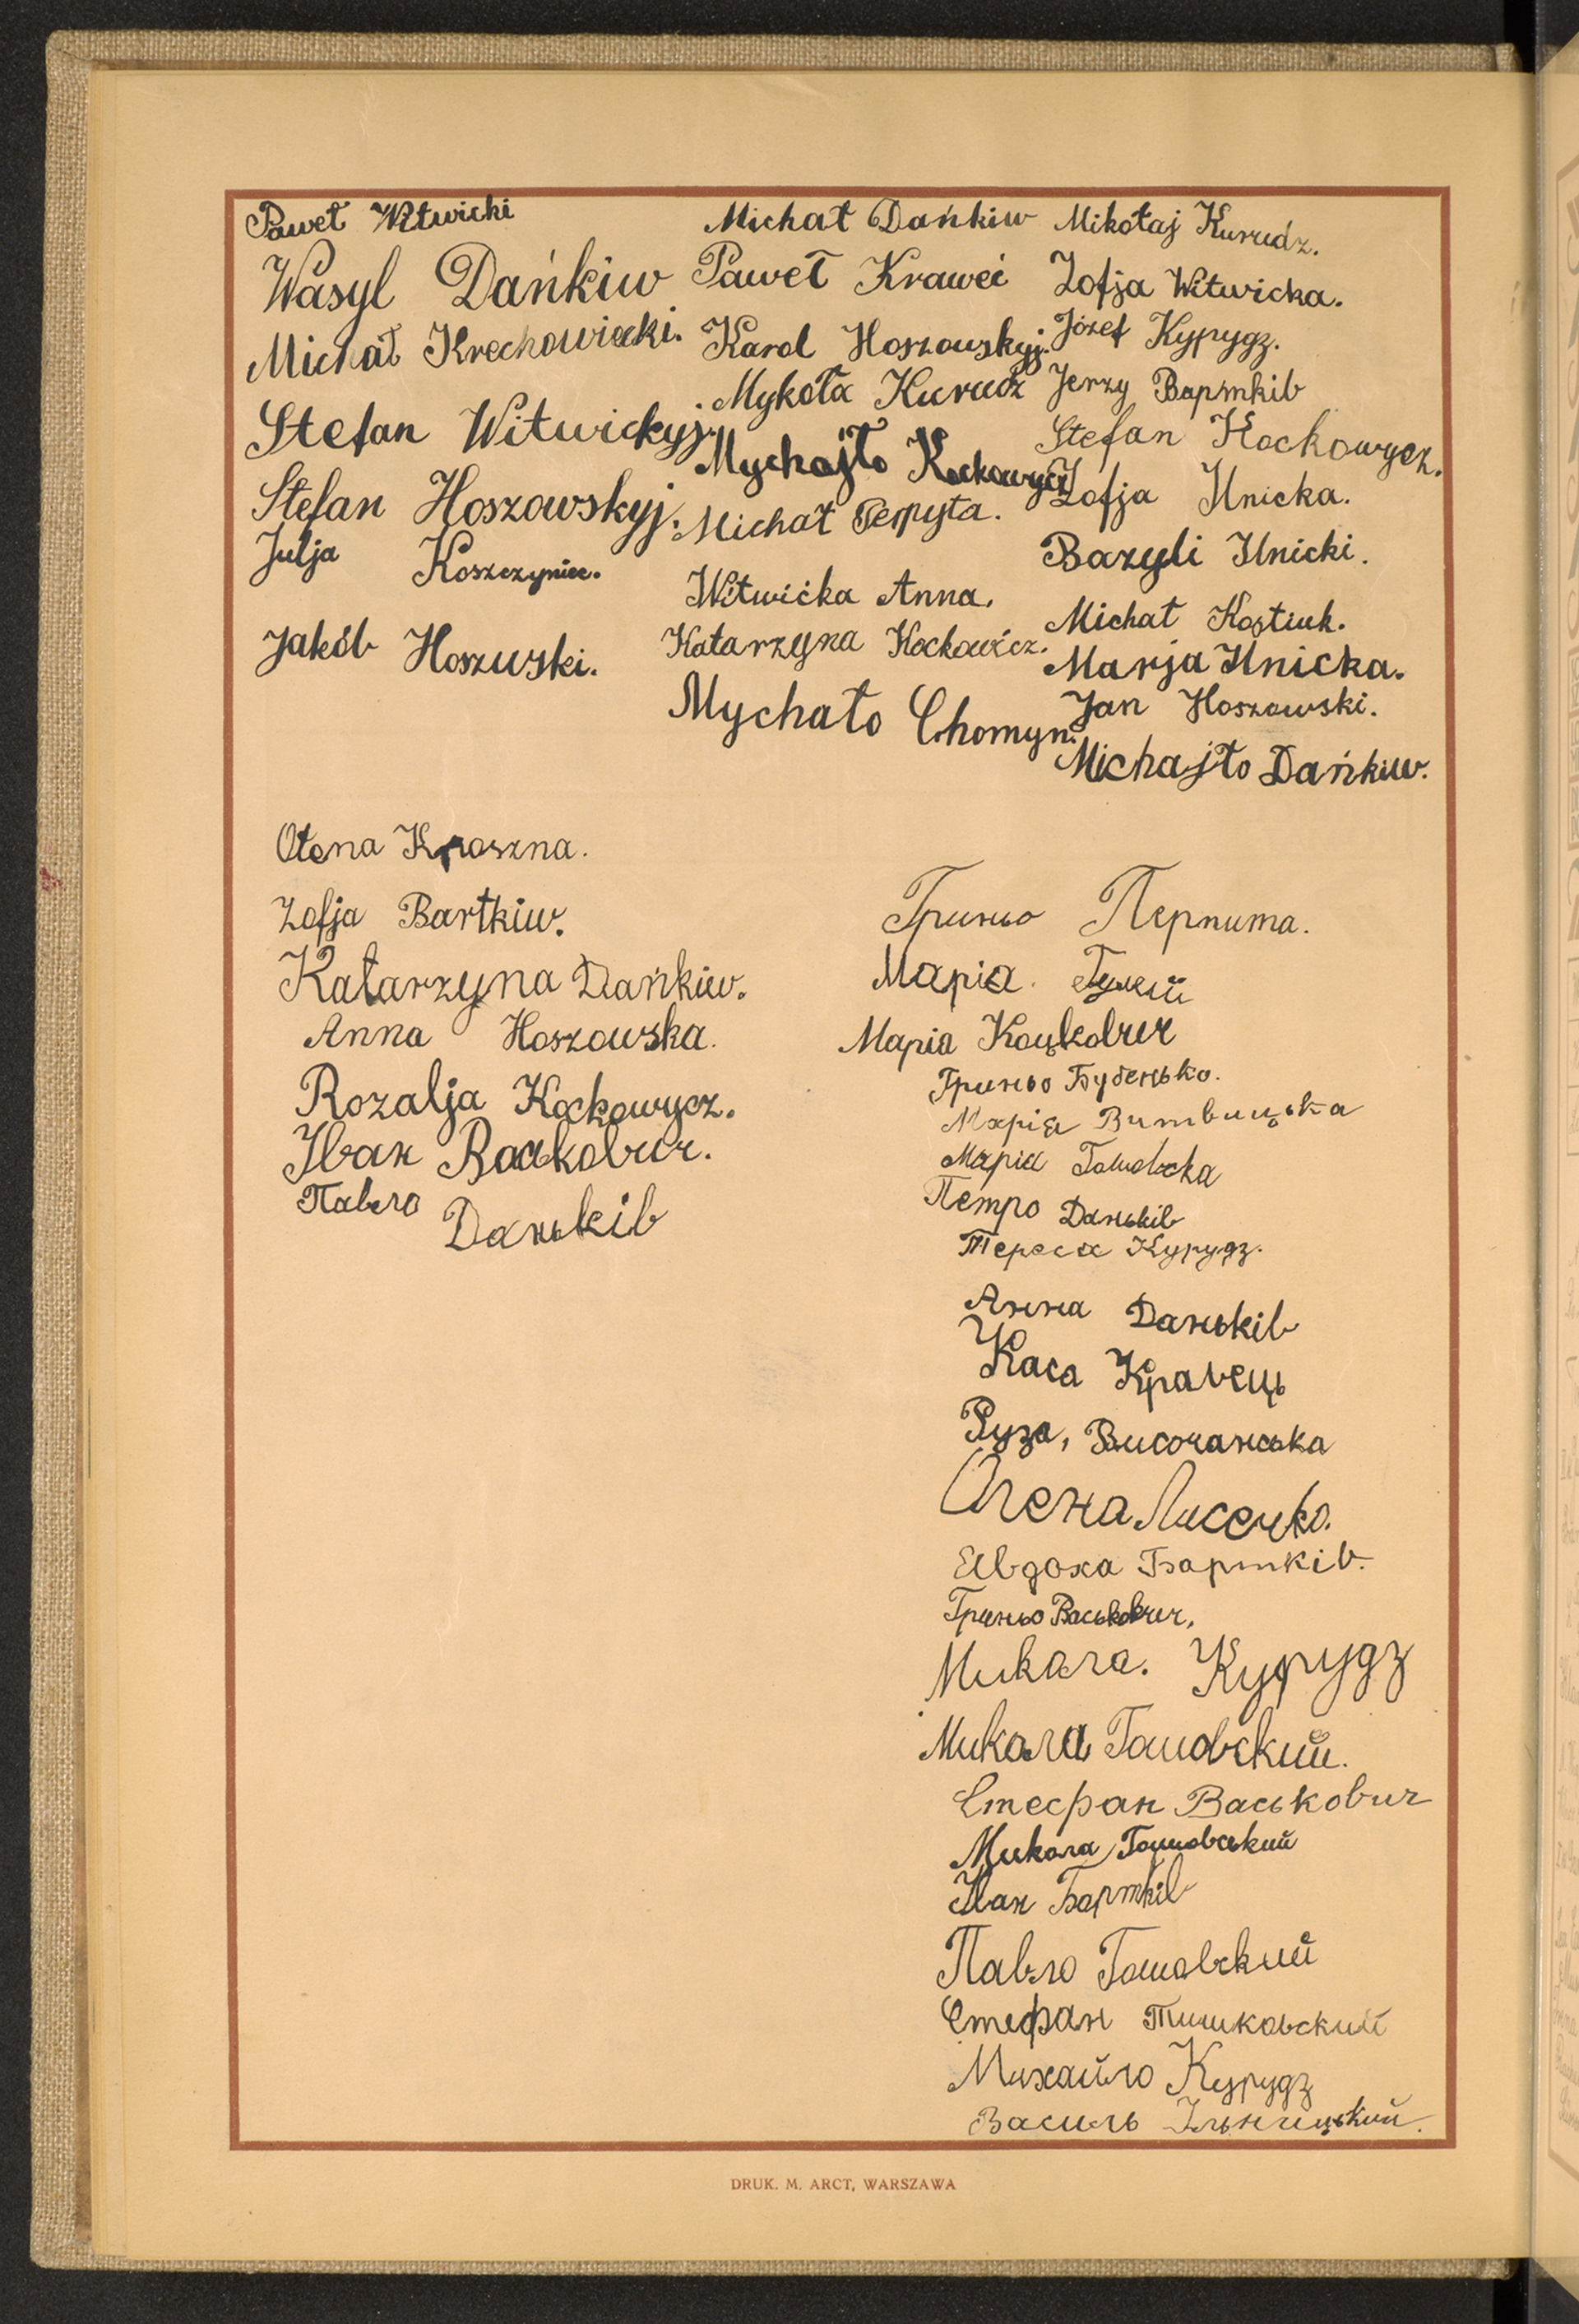 Paweł Witwicki
Wasyl Dańkiw
Michał Krechowiecki.
Stefan Witwickyj.
Stefan Hoszowskyj.
Julja Koszczyniec.
Jakób Hoszuski.
Michał Dańkiw
Paweł Kraweć
Karol Hoszowskyj.
Mykoła Kurudz
Mychajło Kockowycz
Michał Perpyta.
Witwićka Anna.
Katarzyna Kockowicz.
Mychało Chomyn.
Mikołaj Kurudz.
Zofja Witwicka.
Józef Kypygz.
Jerzy Bapmkib
Stefan Kockowycz.
Zofja Ilnicka.
Bazyli Ilnicki.
Michał Kostiuk.
Marja Ilnicka.
Jan Hoszowski.
Michajło Dańkiw.
Ołena Kroszna.
Zofja Bartkiw.
Katarzyna Dańkiw.
Anna Hoszowska.
Rozalja Kockowycz.
Іван Васькович.
Павло Даньків
Гриньо Перпита.
Маріа.
Маріа Коцкович
Гриньо Буденько.
Марія Витвицька
Марія Гошовска
Петро Даньків
Тереса Курудз.
Анна Даньків
Каса Кравець
Рузя, Височанська
Олена Лисечко.
Евдоха Бартків.
Гриньо Васькович,
Микола. Курудз
Микола Гошовский.
Стефан Васькович
Микола Гошовський
Іван Бартків
Павло Гошовский
Стефан Тишковский
Михайло Курудз
Василь Ільницький.
DRUK. M. ARCT, WARSZAWA